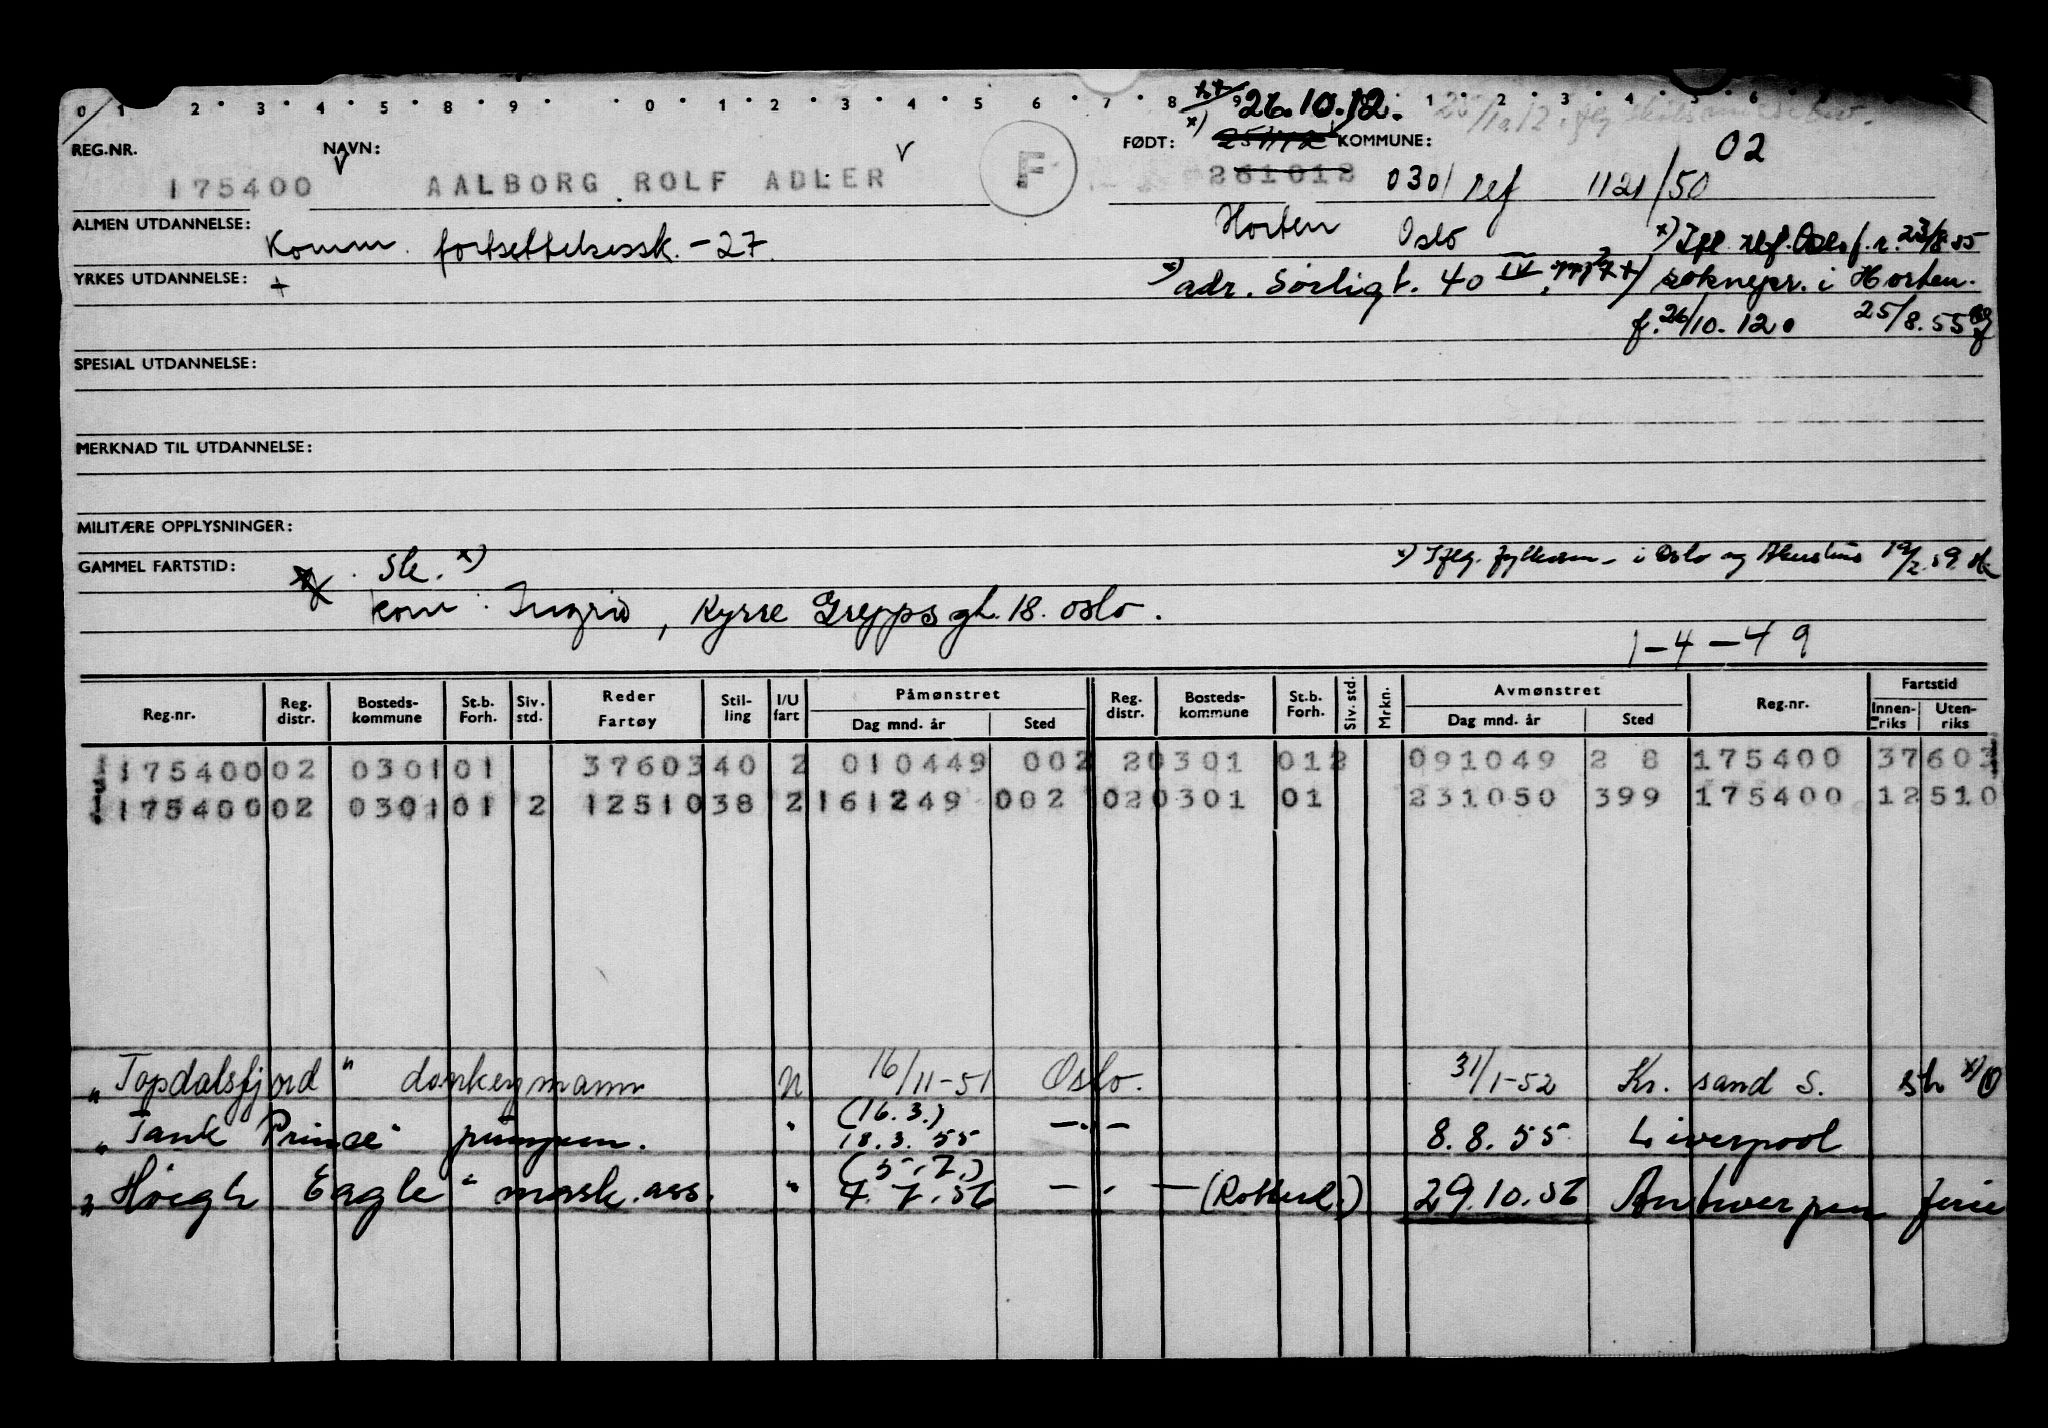 0 1 2 3 4 5 8 9 0 1 2 3 4 5 6 7 8 9 1 2 3 4 5 6
26.10.12.
REG.NR. NAVN: FØDT: KOMMUNE: 02
175400 AALBORG ROLF ADLER F 261012 0301 ref 1121/50
ALMEN UTDANNELSE: Komm. fortsettelsessk. -27. Horten Oslo x) Ifl. ref. Oslo f.r. 23/8 55
YRKES UTDANNELSE: + x) adr. Sørligt. 40 IV, x) soknepr. i Horten.
f. 26/10. 12. 25/8. 55
SPESIAL UTDANNELSE:
MERKNAD TIL UTDANNELSE:
MILITÆRE OPPLYSNINGER:
GAMMEL FARTSTID: x) x) Iflg. fylkesm. i Oslo og Akershus 19/2. 59.
kone: Ingrid, Kyrre Greppsgt. 18. Oslo.
1-4-49
Reg.nr. Reg. distr. Bosteds-kommune St.b. Forh. Siv. std. Reder Fartøy Stil-ling I/U fart Påmønstret Dag mnd. år Sted Reg. distr. Bosteds-kommune St.b. Forh. Siv. std. Mrkn. Avmønstret Dag mnd. år Sted Reg.nr. Fartstid Innen-riks Uten-riks
175400 02 0301 01 37603 40 2 010449 002 2 0301 012 091049 2 8 175400 37603
175400 02 0301 01 2 12510 38 2 161249 002 02 0301 01 231050 399 175400 12510
"Topdalsfjord" donkeymann u 16/11-51 Oslo. 31/1-52 Kr. sand S. x)
(16.3.)
"Tank Prince" pumpem. " 18.3.55 -"- 8.8.55 Liverpool
(5.7.)
"Høegh Eagle" mask.ass. " 4.7.56 -"- (Rotterd.) 29.10.56 Antwerpen ferie